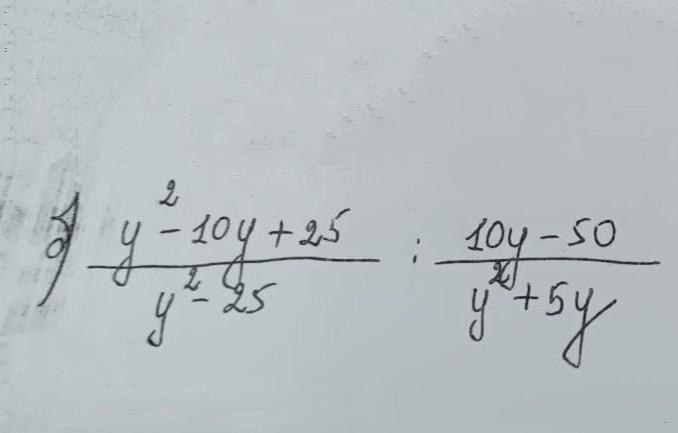 б) (y² - 10y + 25)/(y² - 25) : (10y - 50)/(y² + 5y)